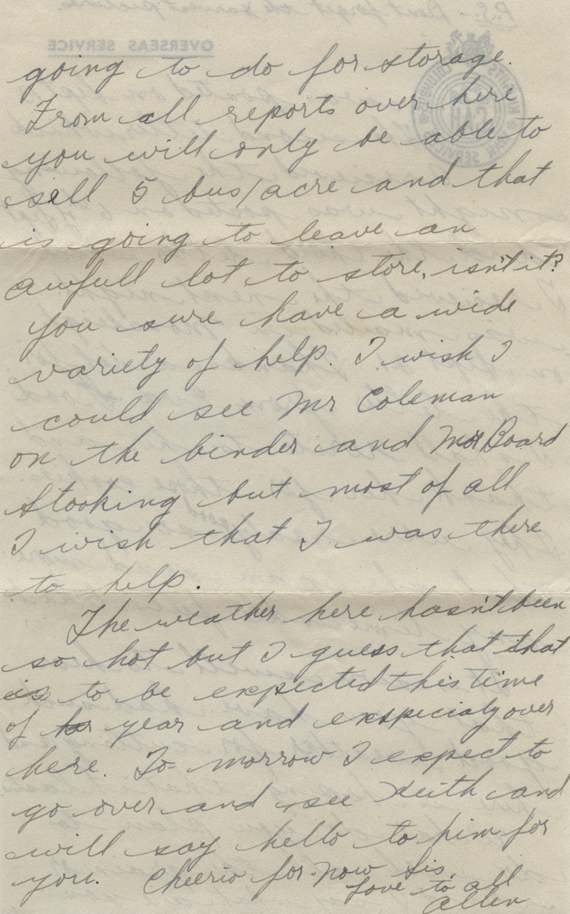 going to do for storage.
From all reports over here
you will only be able to
sell 5 bus/acre and that
is going to leave an
awfull lot to store, isn't it?
You sure have a wide
variety of help. I wish I
could see Mr Coleman
on the binder and Board
stooking but most of all
I wish that I was there
to help.
The weather here hasn't been
so hot but I guess that that
is to be expected this time
of year and exspicialy over
here. To-morrow I expect to
go over and see Keith and
will say hello to him for
you. Cheerio for now Sis.
Love to all
Allen